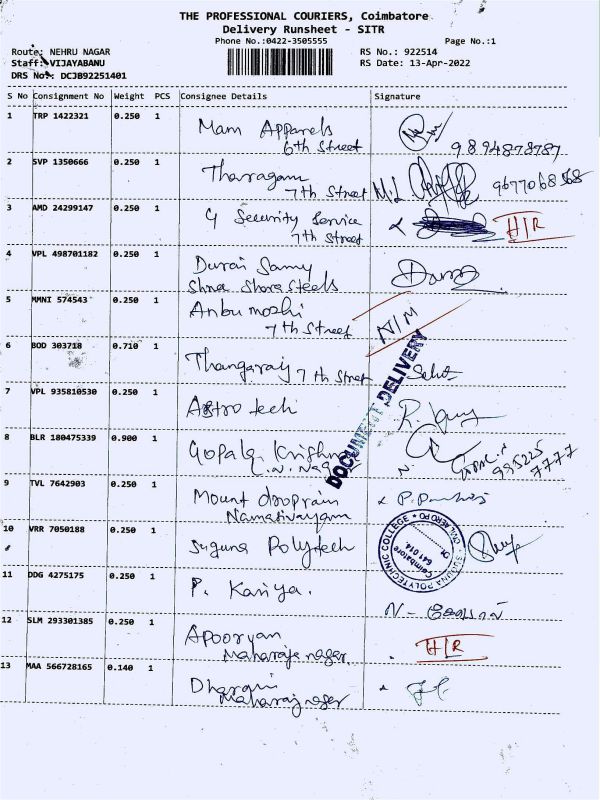 THE PROFESSIONAL COURIERS, Coimbatore
Delivery Runsheet - SITR
Phone No.:0422-3505555
Page No.:1
Route: NEHRU NAGAR
RS No.: 922514
Staff: VIJAYABANU
RS Date: 13-Apr-2022
DRS No.: DCJB92251401
S No Consignment No Weight PCS Consignee Details Signature
1 TRP 1422321 0.250 1 Mam Apparels
6th Street 9894878787
2 SVP 1350666 0.250 1 Tharagam
7th Street
3 AMD 24299147 0.250 1 G Security Service H/R
7th Street
4 VPL 498701182 0.250 1 Durai Samy
Shree Shora Steels
5 MMNI 574543 0.250 1 Anbu mozhi
7th Street N/M
6 BOD 303718 0.710 1 Thangaraj 7th Street
DOCUMENT DELIVERY
7 VPL 935810530 0.250 1 Astro tech
8 BLR 180475339 0.900 1 Gopala Krishna
9 TVL 7642903 0.250 1 Mount
Namasivayam
10 VRR 7050188 0.250 1 Suguna Polytech
SUGUNA POLYTECHNIC COLLEGE
Coimbatore
641 014.
11 DDG 4275175 0.250 1 P. Kaniya.
12 SLM 293301385 0.250 1 Apooryan H/R
Maharaja nagar
13 MAA 566728165 0.140 1 Dharani
Maharaj nagar